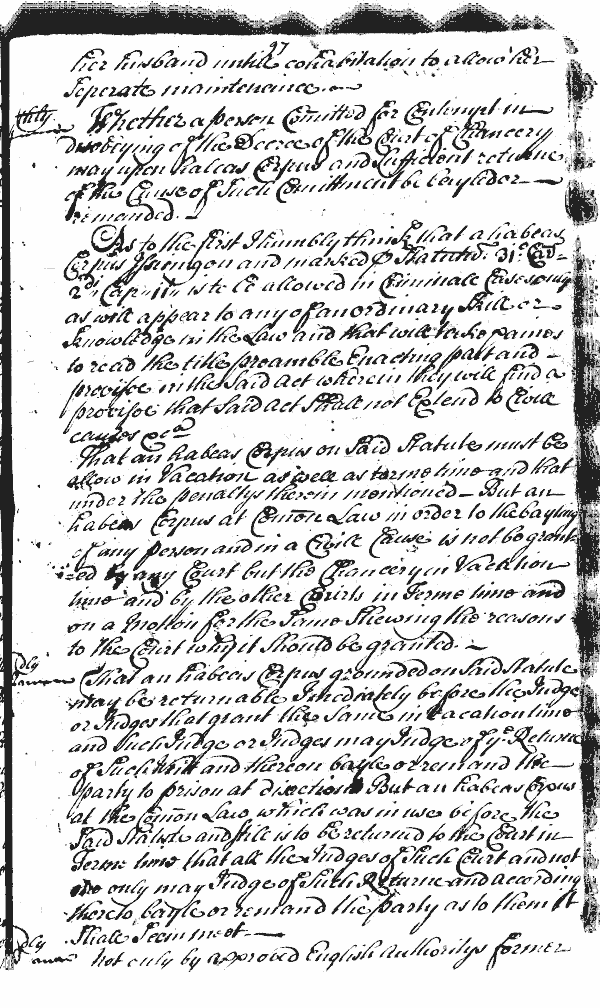 27
her husband untill cohabitation to allow her
seperate maintenance
4thly Whether a person Comitted for Contempt in
disobeying of the Decree of the Court of Chancery
may upon habeas Corpus and Sufficient returne
of the Cause of Such Comittment be bayled or
remanded.
As to the first I humbly think that a habeas
Corpus Issueing on and marked p Statute. 31º Car.
2d Cap. is to be allowed in Criminale Cases only
as will appear to any of an ordinary Skill or
knowledge in the Law and that will take paines
to read the title preamble Enacting part and
provisoe in the Said act wherein they will find a
provisoe that Said act Shall not Extend to Civill
causes &ca
That an habeas Corpus on Said Statute must be
allow in Vacation as well as terme time and that
under the penaltys therein mentioned – But an
habeas Corpus at Comon Law in order to the bayling
of any person and in a Civill Cause is not be grant
=ed by any Court but the Chancery in Vacation
time and by the other Courts in Terme time and
on a motion for the Same Shewing the reasons
to the Court why it Should be granted.
dly That an habeas Corpus grounded on Said Statute
may be returnable Imediately before the Judge
or Judges that grant the Same in vacation time
and Such Judge or Judges may Judge of ye. Returne
of Such Writt and thereon bayle or remand the
party to prison at discretion But an habeas Corpus
at the Comon Law, which was in use before the
Said Statute and Still is to be returned to the Court in
Terme time that all the Judges of Such Court and not
one only may Judge of Such Returne and according
thereto bayle or remand the party as to them it
Shall Seem meet.
dly not only by approved English Authoritys former